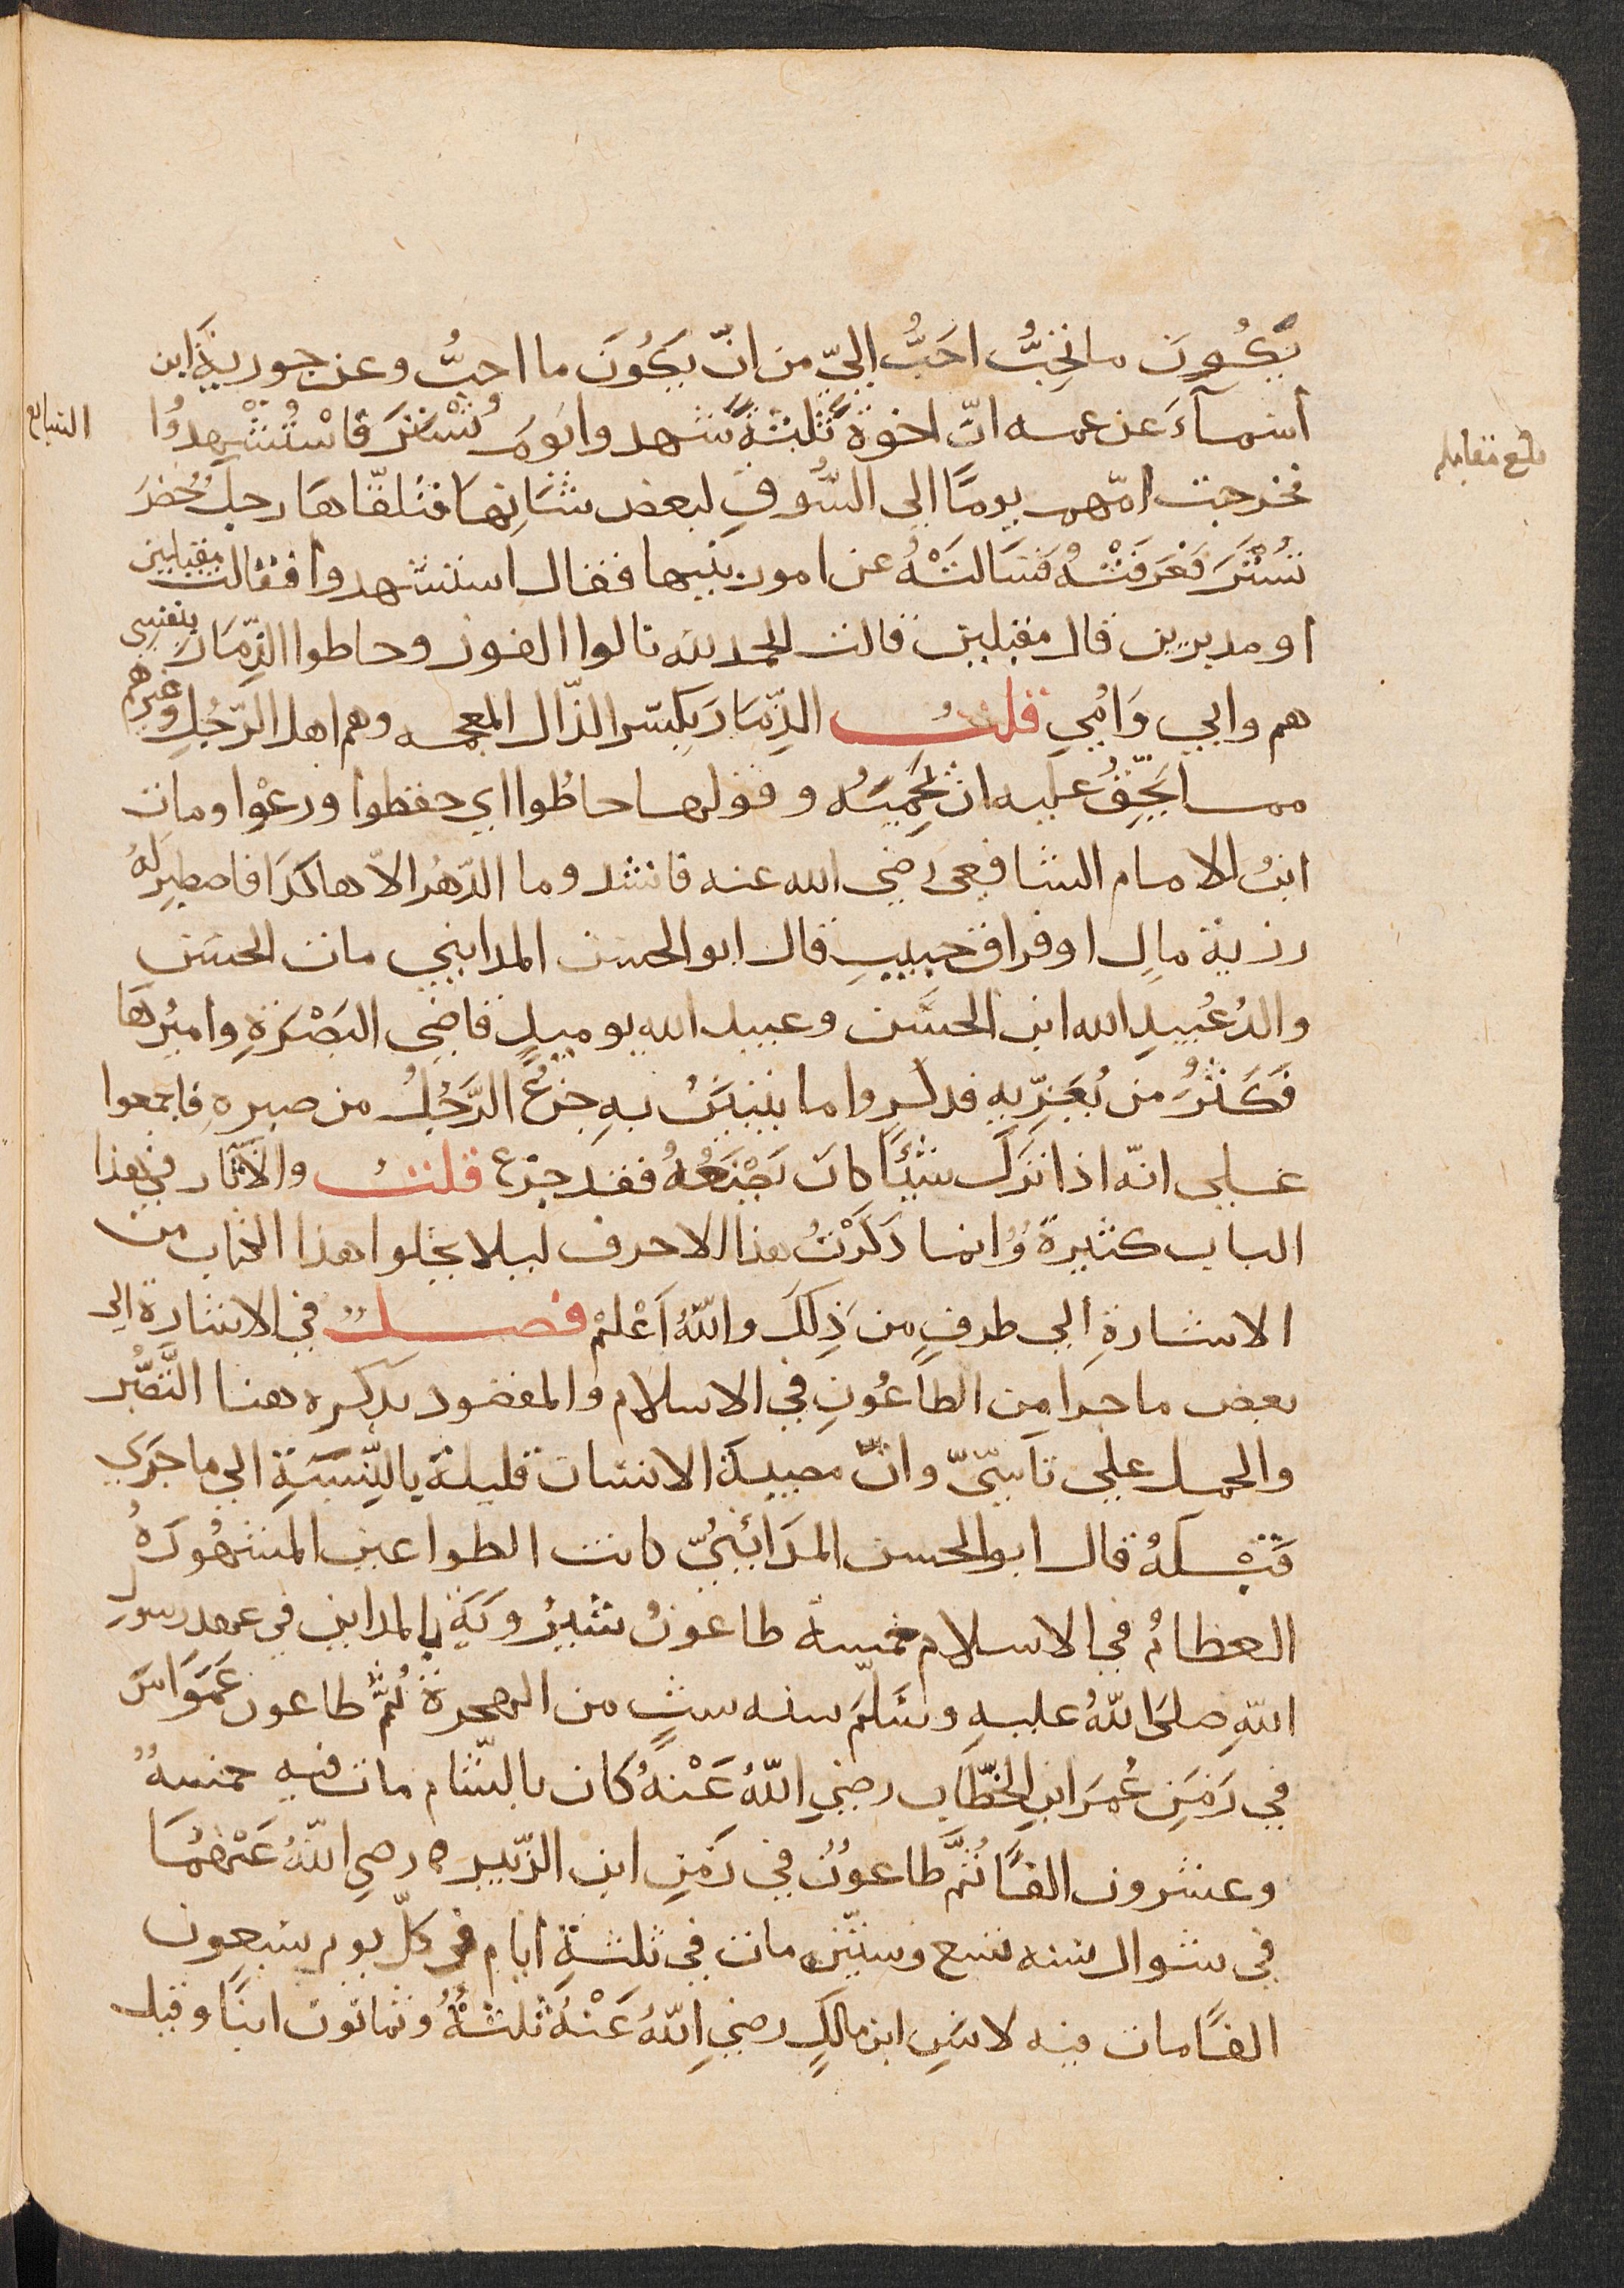 يَكُونَ ما تُحِبُّ احَبُّ اليّ من انّ يَكُونَ ما احبُّ وعن جويريَةَ ابن
أسمآءَ عن عمه انّ اخوةً ثَلثةً شهدوا يَومَ تُسْتَرَ فَاسْتُشْهِدُوا
فخرجت امّهم يومًا الي السُّوقِ لبعض شَانِهَا فَتَلقّاهَا رجلٌ حُضَرَ
تُسْتَرَ فَعَرَفَتْهُ فَسَالَتْهُ عن امور بَنِيها فقال استشهدوا فقالت مقبلين
او مدبرين قال مقبلين قالت الحمد لله نالوا الفوز وحاطوا الذِّمَارَ بنفسي
هم وابي وَامّي قلتُ الذِّمَارَ بِكَسْرِ الذّال المعجمه وهم اهل الرّجُلِ وغيرهم
مما يَحِقُّ عليه ان يَحْمِيَهُ وقولها حاطُوا اي حفظوا ورعَوْا ومات
ابنُ الامام الشافعي رضي الله عنه فانشد وما الدّهرُ الاّ هاكذَا فاصطبِر لهُ
رزية مالٍ او فراق حبيبٍ قال ابو الحسن المدايني مات الحسَن
والدُ عُبيدِ الله ابن الحسَن وعبيد الله يوميذٍ قاضي البَصْرَةِ وامِيُرهَا
فَكَثُرَ من يُعَزِّيهِ فذكروا ما يتبيّنُ بهِ جَزعُ الرَّجُلُ من صبرهِ فاجمعوا
علي انّه اذا تَرَكَ شيئًا كان يَصْنَعُهُ فقد جزع قلتُ والآثار في هذا
الباب كثيرةٌ وَانما ذكَرْتُ هذا الاحرف ليلا يخلوا هذا الكتاب من
الاشارةِ الي طرفٍ من ذِلكَ واللهُ اَعْلمْ فصلٌ في الاشارة الي
بعض ما جرا من الطاعُونِ في الاسلام والمقصود بذكره هنا التَّصَبُّر
والحمل علي تاَسّيّ وانّ مصيبَة الانسان قليلة بالنِّسَبَةِ الي ما جَرَي
قَبْلَهُ قال ابو الحسن المدَائنيُّ كانت الطواعين المشهُورَهُ
العظامُ في الاسلام خمسة طاعونُ شيرُويَةَ بالمداين في عهد رسول
اللهِ صلى اللهُ عليهِ وسَلّمَ سنه ستٍ من الهجرة ثُمَّ طاعون عَمَوَاسَ
في زمَنِ عُمَرَ ابنِ الخطَّاب رضي اللهُ عَنْهُ كَان بالشّام مات فيه خمسهٌ
وعشرون الفًا ثُمَّ طاعونٌ في زمَنِ ابن الزّبير رضي اللهُ عَنْهُمَا
في شوال سَنه تسع وستّين مات في ثلثةِ ايّام في كلّ يوم سَبعون
الفًا مات فيه لانسِ ابن مالكٍ رضي اللهُ عَنْهُ ثلثةٌ وثمانون ابنًا وقيل
بلغ مقابله